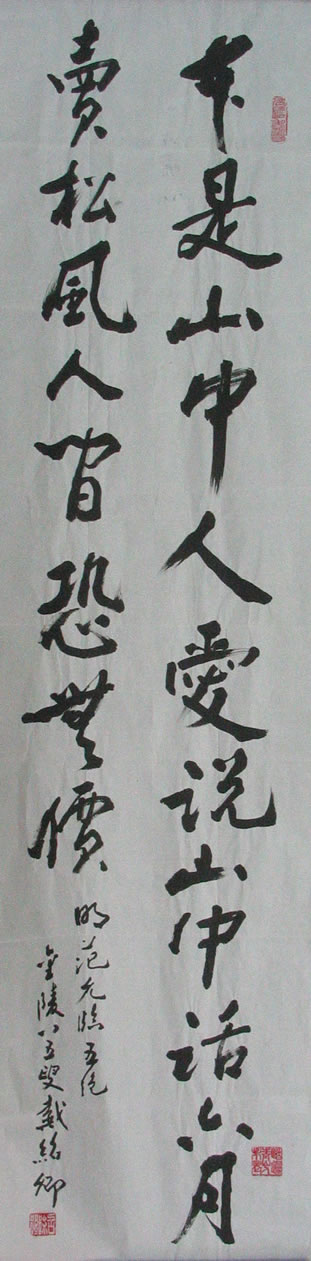 本是山中人愛説山中話六月
賣松風人間恐無價
明范允臨五绝
金陵八五叟戴紹卿